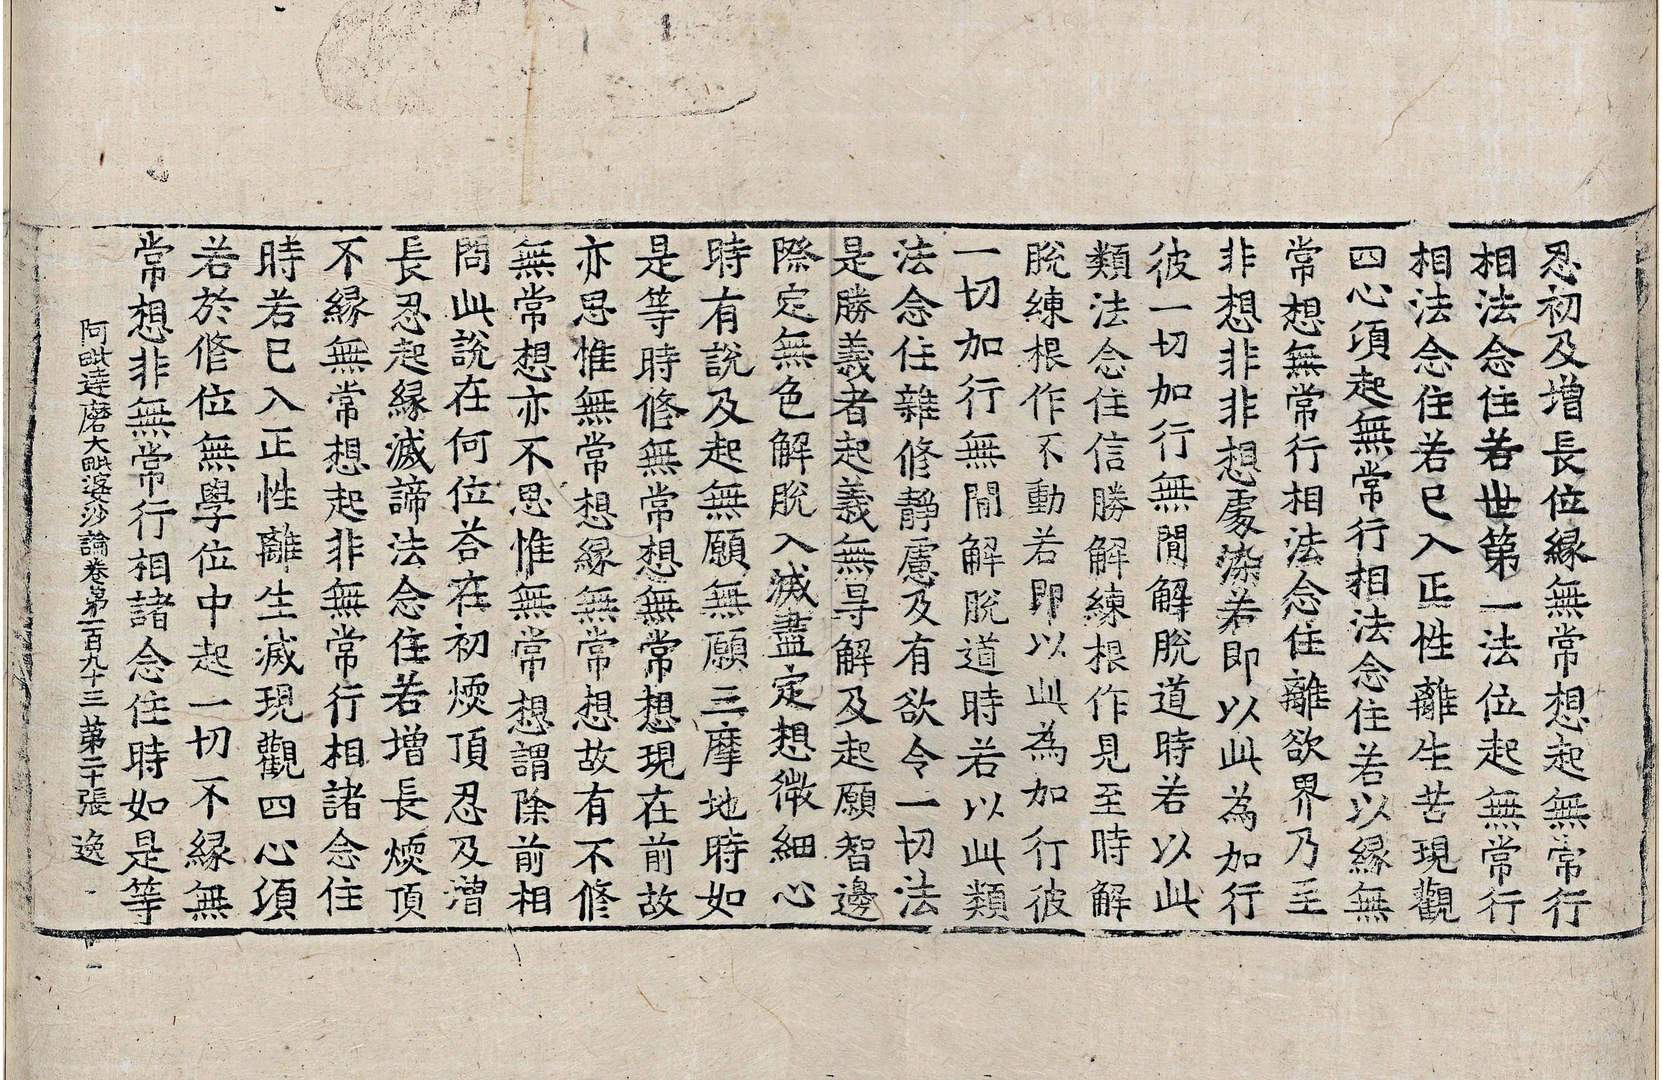 忍初及增長位緣無常想起無常行
相法念住若世第一法位起無常行
相法念住若已入正性離生苦現觀
四心湏起無常行相法念住若以緣無
常想無常行相法念住離欲界乃至
非想非非想處染若即以此為加行
彼一切加行無閒解脫道時若以此
類法念住信勝解練根作見至時解
脫練根作不動若即以此為加行彼
一切加行無閒解脫道時若以此類
法念住雜修靜慮及有欲令一切法
是勝義者起義無㝵解及起願智邊
際定無色解脫入滅盡定想微細心
時有說及起無願無願三摩地時如
是等時修無常想無常想現在前故
亦思惟無常想緣無常想故有不修
無常想亦不思惟無常想謂除前相
問此說在何位荅在初煗頂忍及増
長忍起緣滅諦法念住若增長煗頂
不緣無常想起非無常行相諸念住
時若已入正性離生滅現觀四心湏
若於修位無學位中起一切不緣無
常想非無常行相諸念住時如是等
阿毗達磨大毗婆沙論卷第一百九十三 第二十張 逸